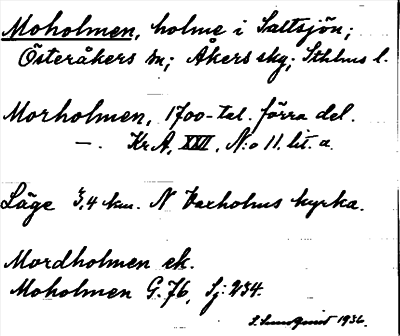 Moholmen, holme i Saltsjön;
Österåkers sn; Åkers skg; Sthlms l.
Morholmen, 1700-tal. förra del.
—. Kr.A, XXVI, N:o 11. lit. a.
Läge 3,4 km. N Vaxholms kyrka.
Mordholmen ek.
Moholmen G. 76, Sj: 234.
S. Lundquist 1936.